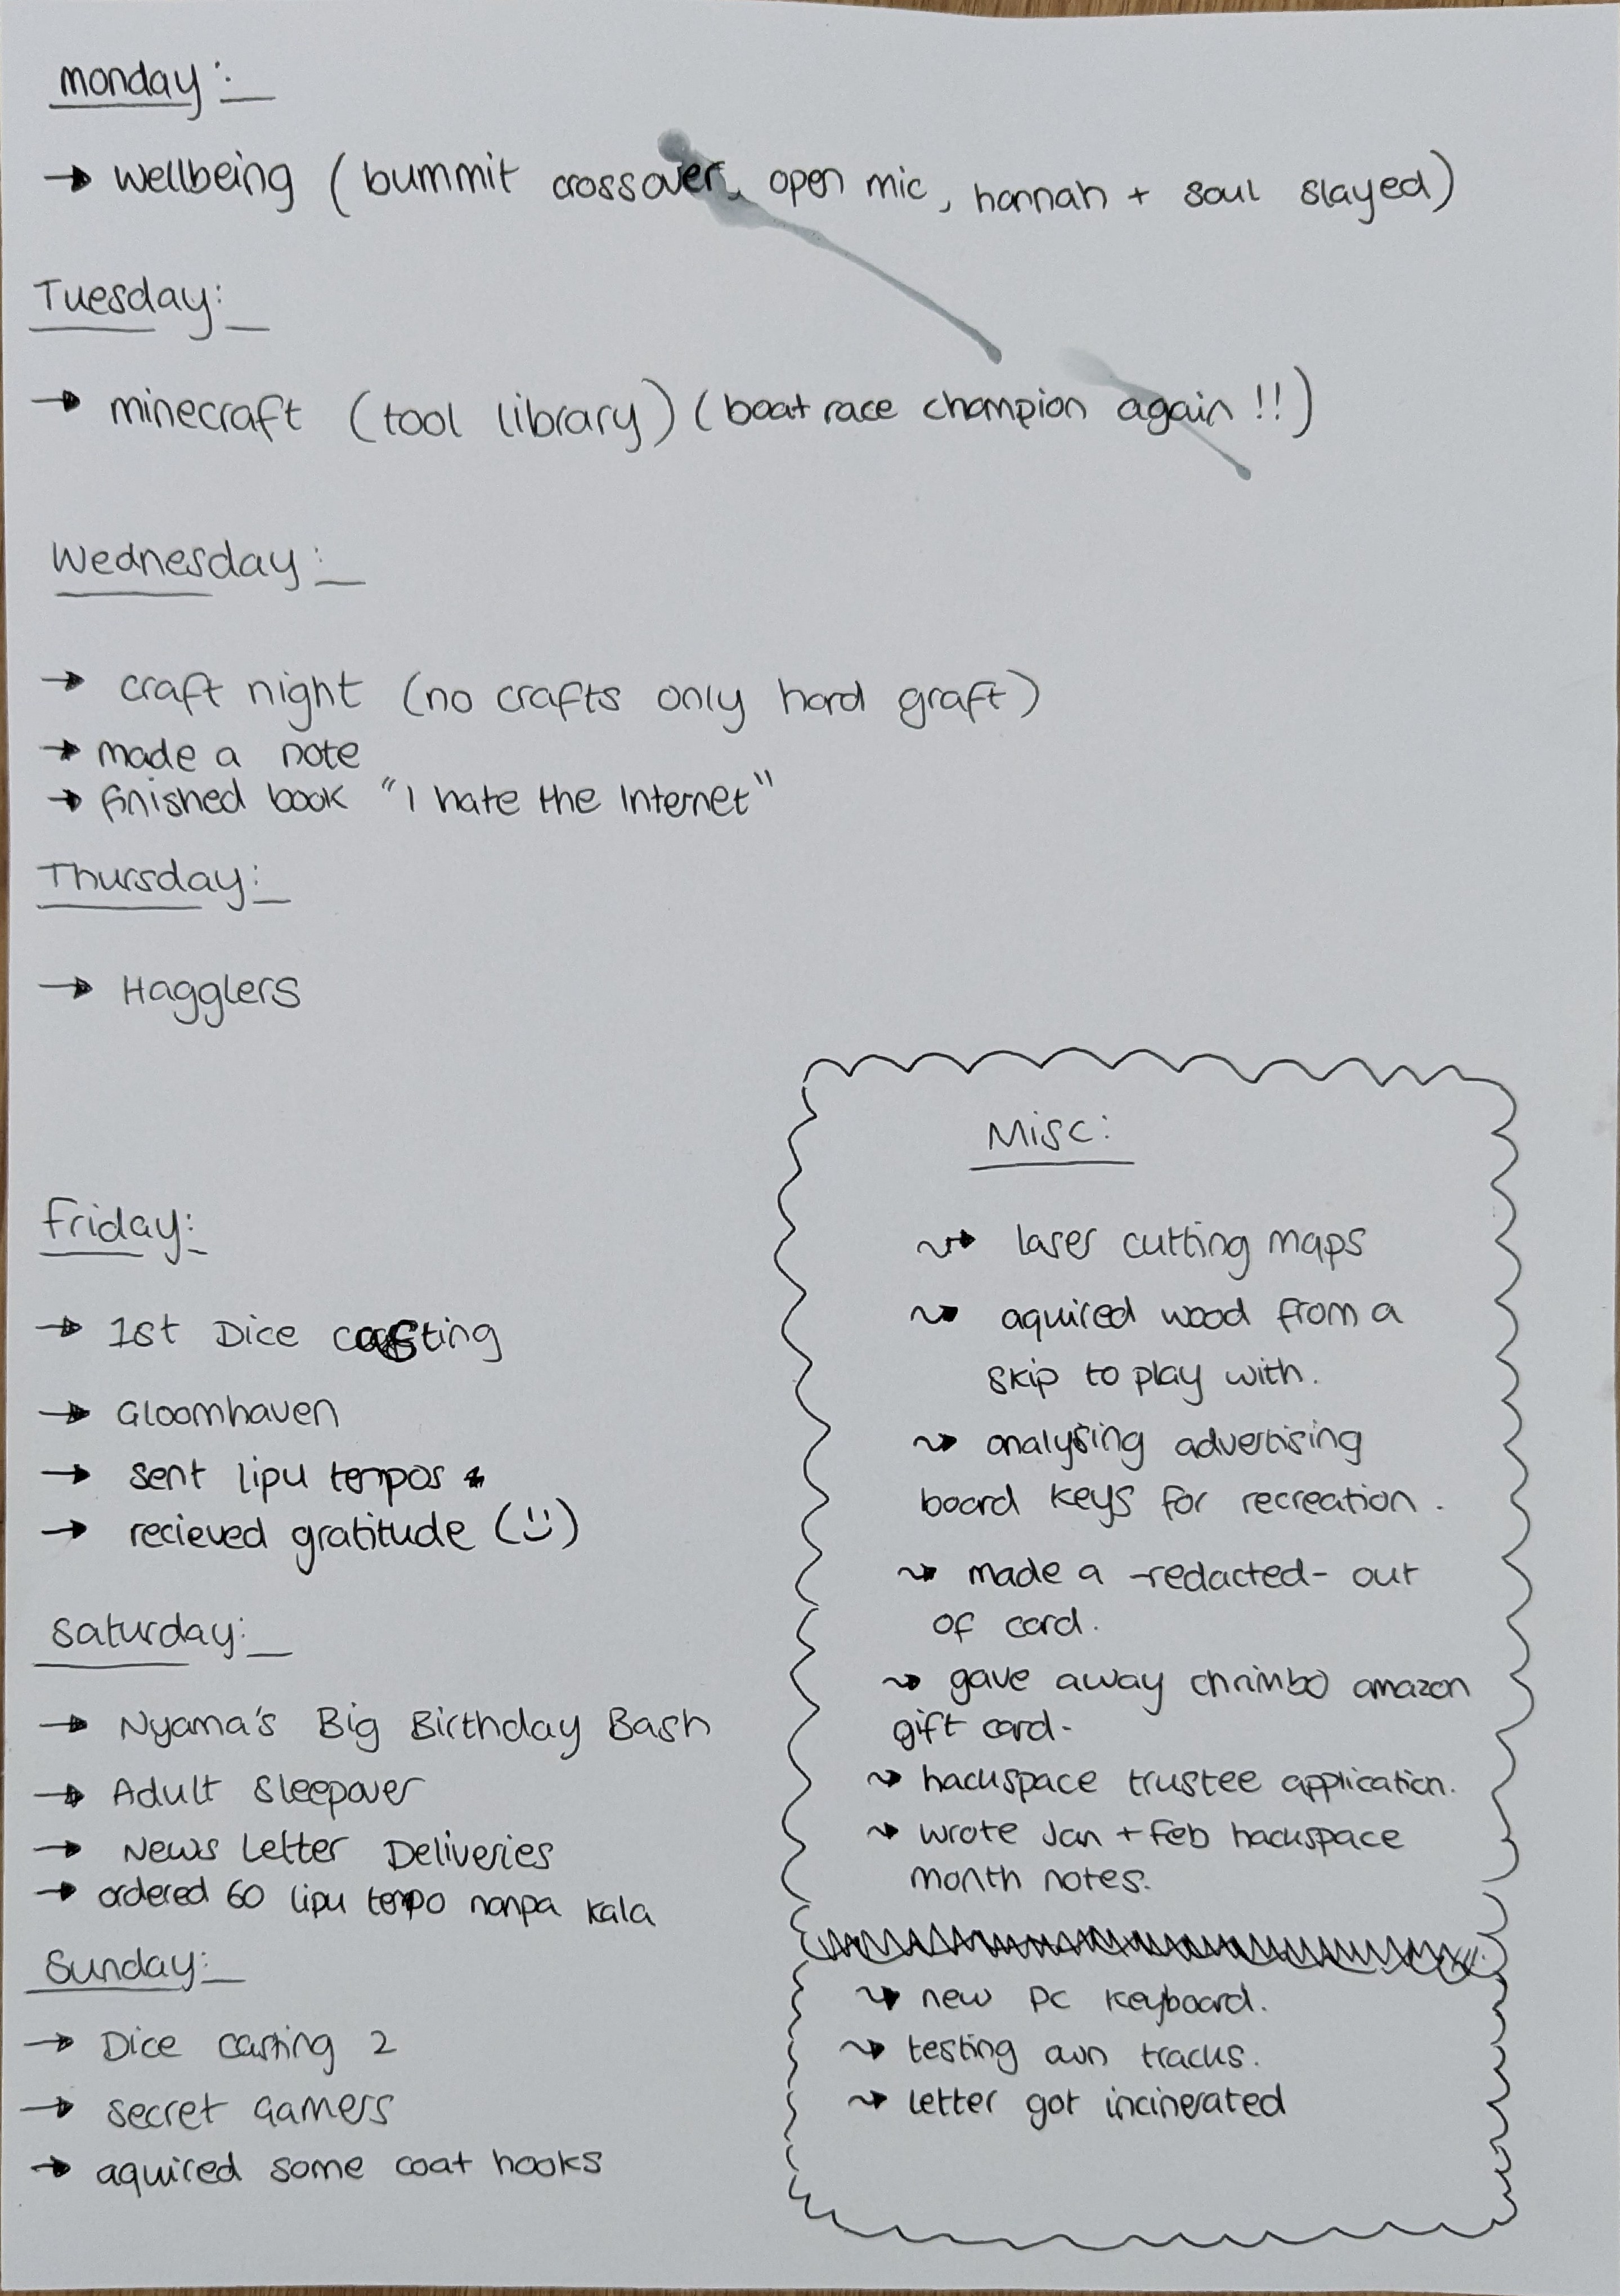 monday:
→ wellbeing (bummit crossover, open mic, hannah + soul slayed)
Tuesday:
→ minecraft (tool library) (boat race champion again!!)
Wednesday:
→ craft night (no crafts only hard graft)
→ made a note
→ finished book "I hate the Internet"
Thursday:
→ Hagglers
Friday:
→ 1st Dice casting
→ Gloomhaven
→ sent lipu tenpos
→ recieved gratitude (:))
Saturday:
→ Nyama's Big Birthday Bash
→ Adult Sleepover
→ News Letter Deliveries
→ ordered 60 lipu tenpo nanpa kala
Sunday:
→ Dice casting 2
→ secret gamers
→ aquired some coat hooks
Misc:
⤳ laser cutting maps
⤳ aquired wood from a
skip to play with.
⤳ analysing advertising
board keys for recreation.
⤳ made a -redacted- out
of card.
⤳ gave away chrimbo amazon
gift card-
⤳ hackspace trustee application.
⤳ wrote Jan + Feb hackspace
month notes.
⤳ new pc keyboard.
⤳ testing own tracks.
⤳ letter got incinerated